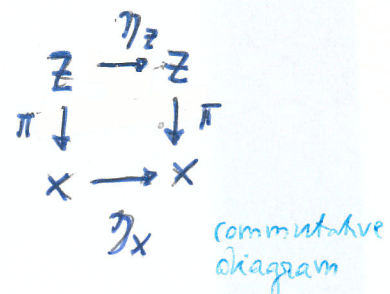 η_Z
Z → Z
π ↓ ↓ π
X → X
η_X
commutative
diagram